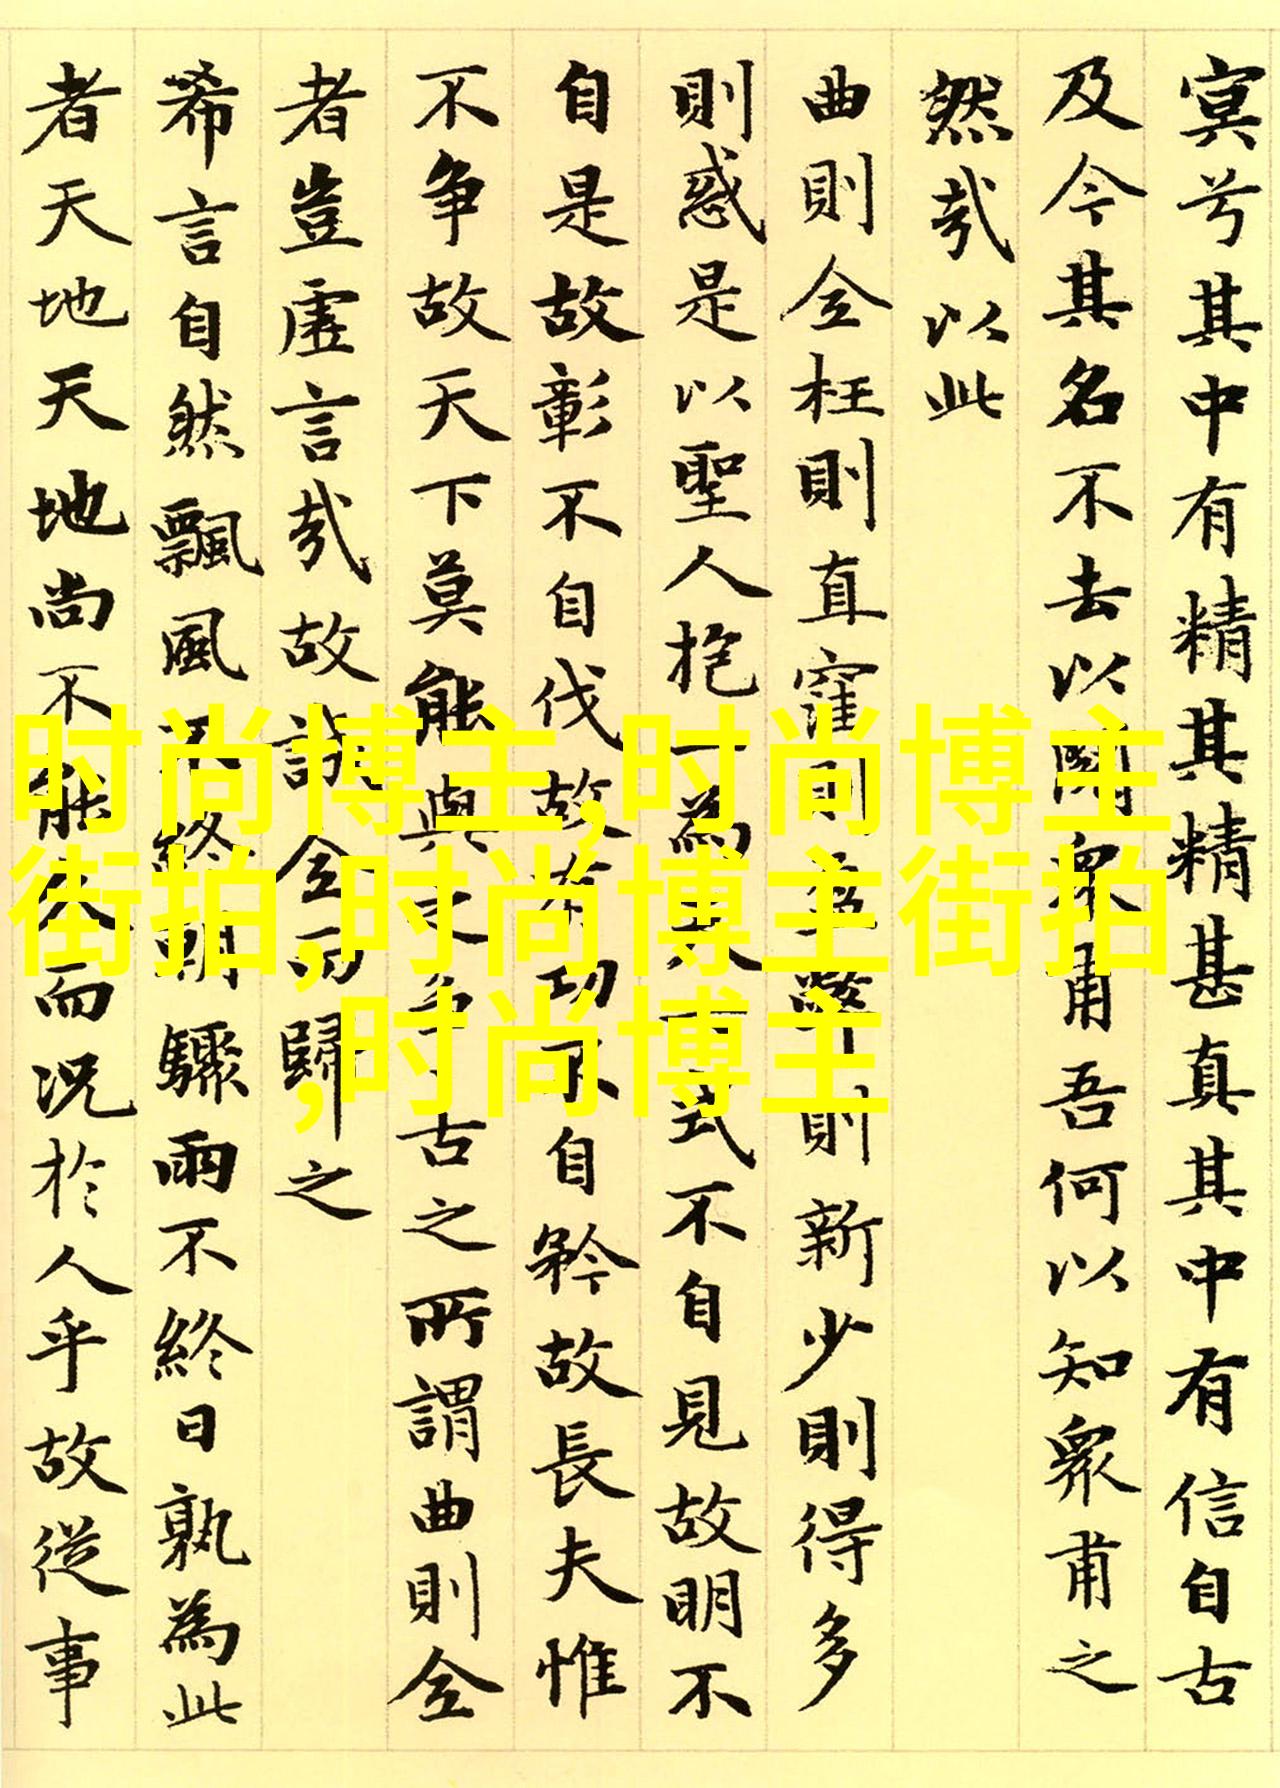 冥兮其中有精其精甚真其中有信自古
及今其名不去以閱衆甫吾何以知衆甫之
然哉以此
曲則全枉則直窪則盈弊則新少則得多
則惑是以聖人抱一為天下式不自見故明不
自是故彰不自伐故有功不自矜故長夫惟
不争故天下莫能與之争古之所謂曲則全
者豈虛言哉故誠全而歸之
希言自然飄風不終朝驟雨不終日孰為此
者天地天地尚不能久而况於人乎故從事
时尚博主,时尚博主
街拍,时尚博主街拍
,时尚博主